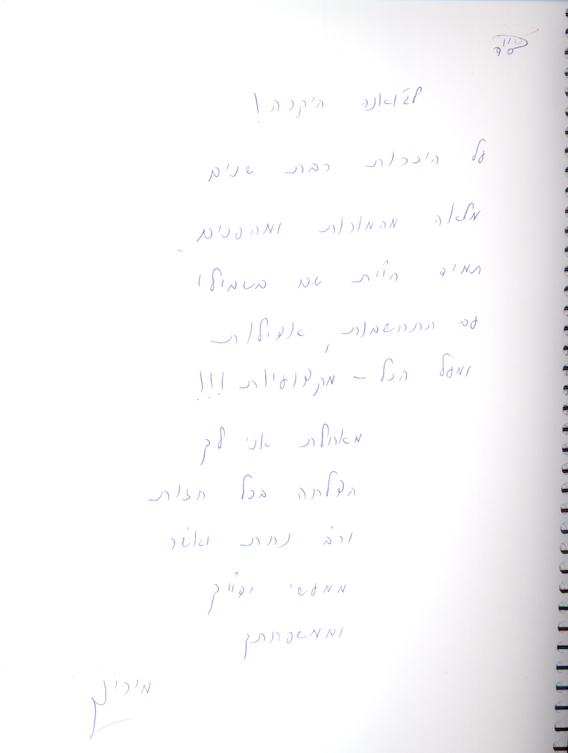 בס"ד
לג'ואנה היקרה!
על היכרות רבת שנים
מלאה מהמורות ומהפכים
תמיד היית שם בשבילי
עם התחשבות, אצילות
ומעל הכל – מקצועיות!!!
מאחלת אני לך
הצלחה בכל חזית
ורב נחת ואושר
ממעשי ידייך
וממשפחתך
מירי